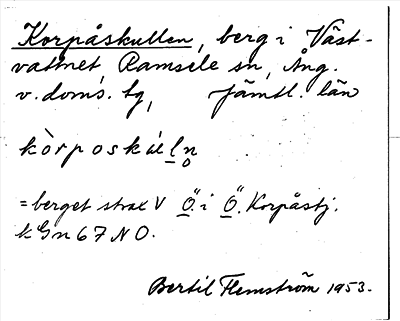 Korpåskullen, berg i Väst-
vattnet Ramsele sn, Ång.
v. doms. tg, Jämtl. län
kòrposkúl̲n̥
= berget strax V Ö. i Ö. Korpåstj.
k Gn 67 N O.
Bertil Flemström 1953.